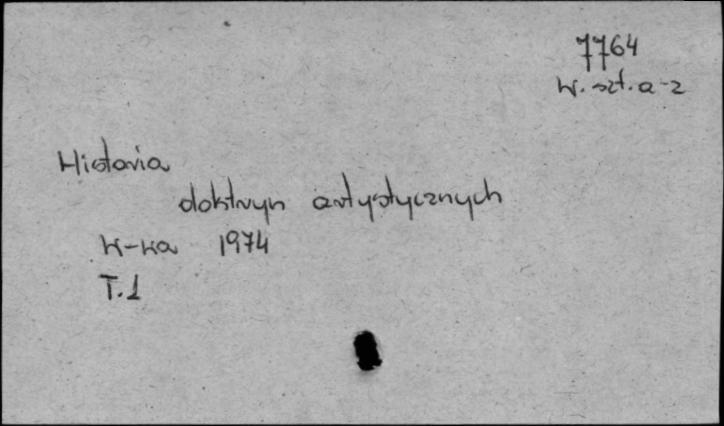 7764
H. szt. a-z
Historia
doktryn artystycznych
K-ka 1974
T.1